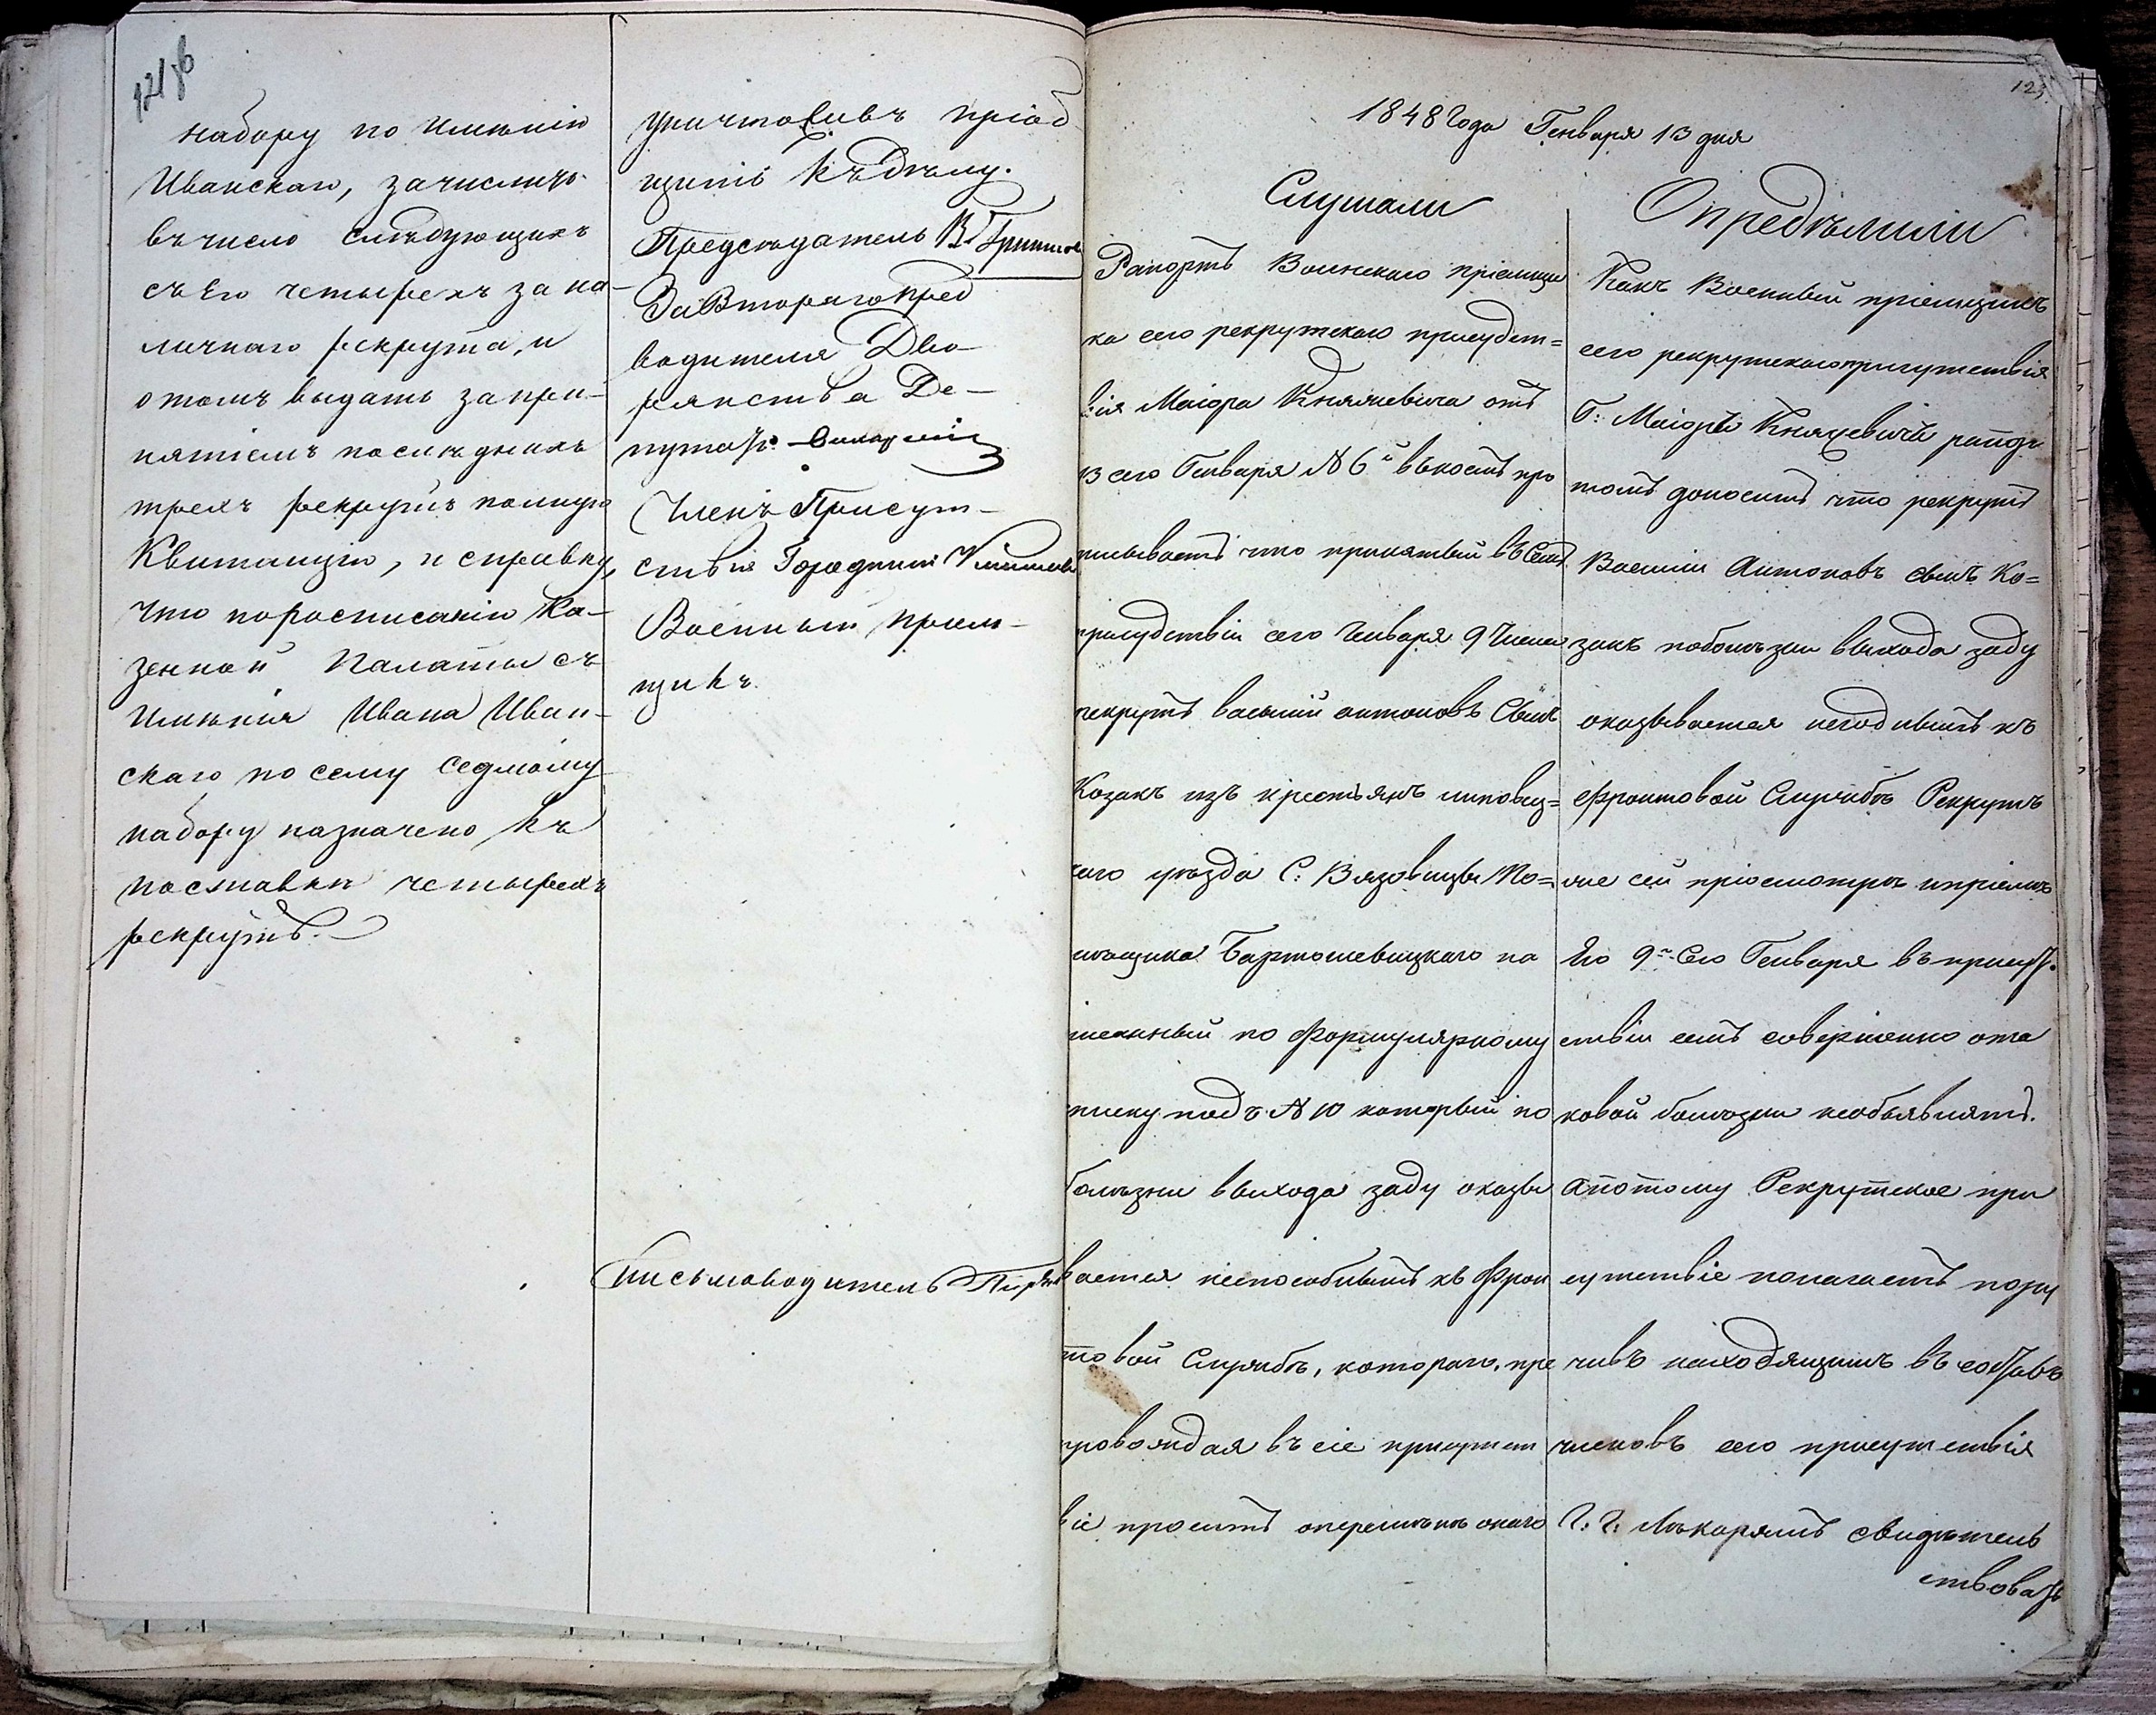 набору по имѣнію
Иванскаго, зачислить
въ число слѣдующихъ
съ Его четырехъ за на-
личнаго рекрута, и
отомъ выдать запри-
нятіемъ послѣднихъ
трехъ рекрутъ полную
Квитанцію, и справку,
что поросписанію Ка-
зенной Палаты съ
Имѣнія Ивана Иван-
скаго по сему седмому
набору назначено къ
поставкѣ четырехъ
рекрутъ.
уничтоживъ пріоб
щить къ дѣлу.
Предсѣдатель
За Втораго пред
водителя Дво-
рянства Де-
путатъ
Членъ Присут-
ствія Городничій
Военный прием-
щикъ.
Письмоводитель
123
1848 Года Генваря 13 дня
Слушали
Рапортъ Воинскаго пріемщи
ка сего рекрутскаго присудст=
вія Маіора Княжевича отъ
13 сего Генваря № 6й въ коемъ про
писываетъ что принятый въ Семъ
присудствіи сего Генваря 9 Числа
рекрутъ василій антоновъ Сынъ
Козакъ изъ крестьянъ липовец=
каго уѣзда С: Вязовицы По=
мѣщика Бартошевицкаго на
писанный по Формулярному
списку подъ № 10 который по
болѣзни выхода заду оказы
вается неспособнымъ къ Фрон
товой Службѣ, котораго, пре
провождая въ сіе присутст
віе проситъ оперемѣнѣ онаго
Опредѣлили
Какъ Военный пріемщикъ
сего рекрутскаго присутствія
Г: Маіоръ Княжевичъ рапор
томъ доноситъ что рекрутъ
Василій Антоновъ сынъ Ко=
закъ поболѣзни выхода заду
оказывается негоднымъ къ
Фронтовой Службѣ Рекрутъ
же сей приосмотрѣ и пріемѣ
Его 9го Сего Генваря въ присут
ствіи семъ совершенно ота
ковой болѣзни необъявлялъ.
апотому Рекрутское при
сутствіе полагаетъ пору
чивъ находящимъ въ составѣ
членовъ сего присутствія
Г: Г: Лѣкарямъ свидѣтель
ствовать